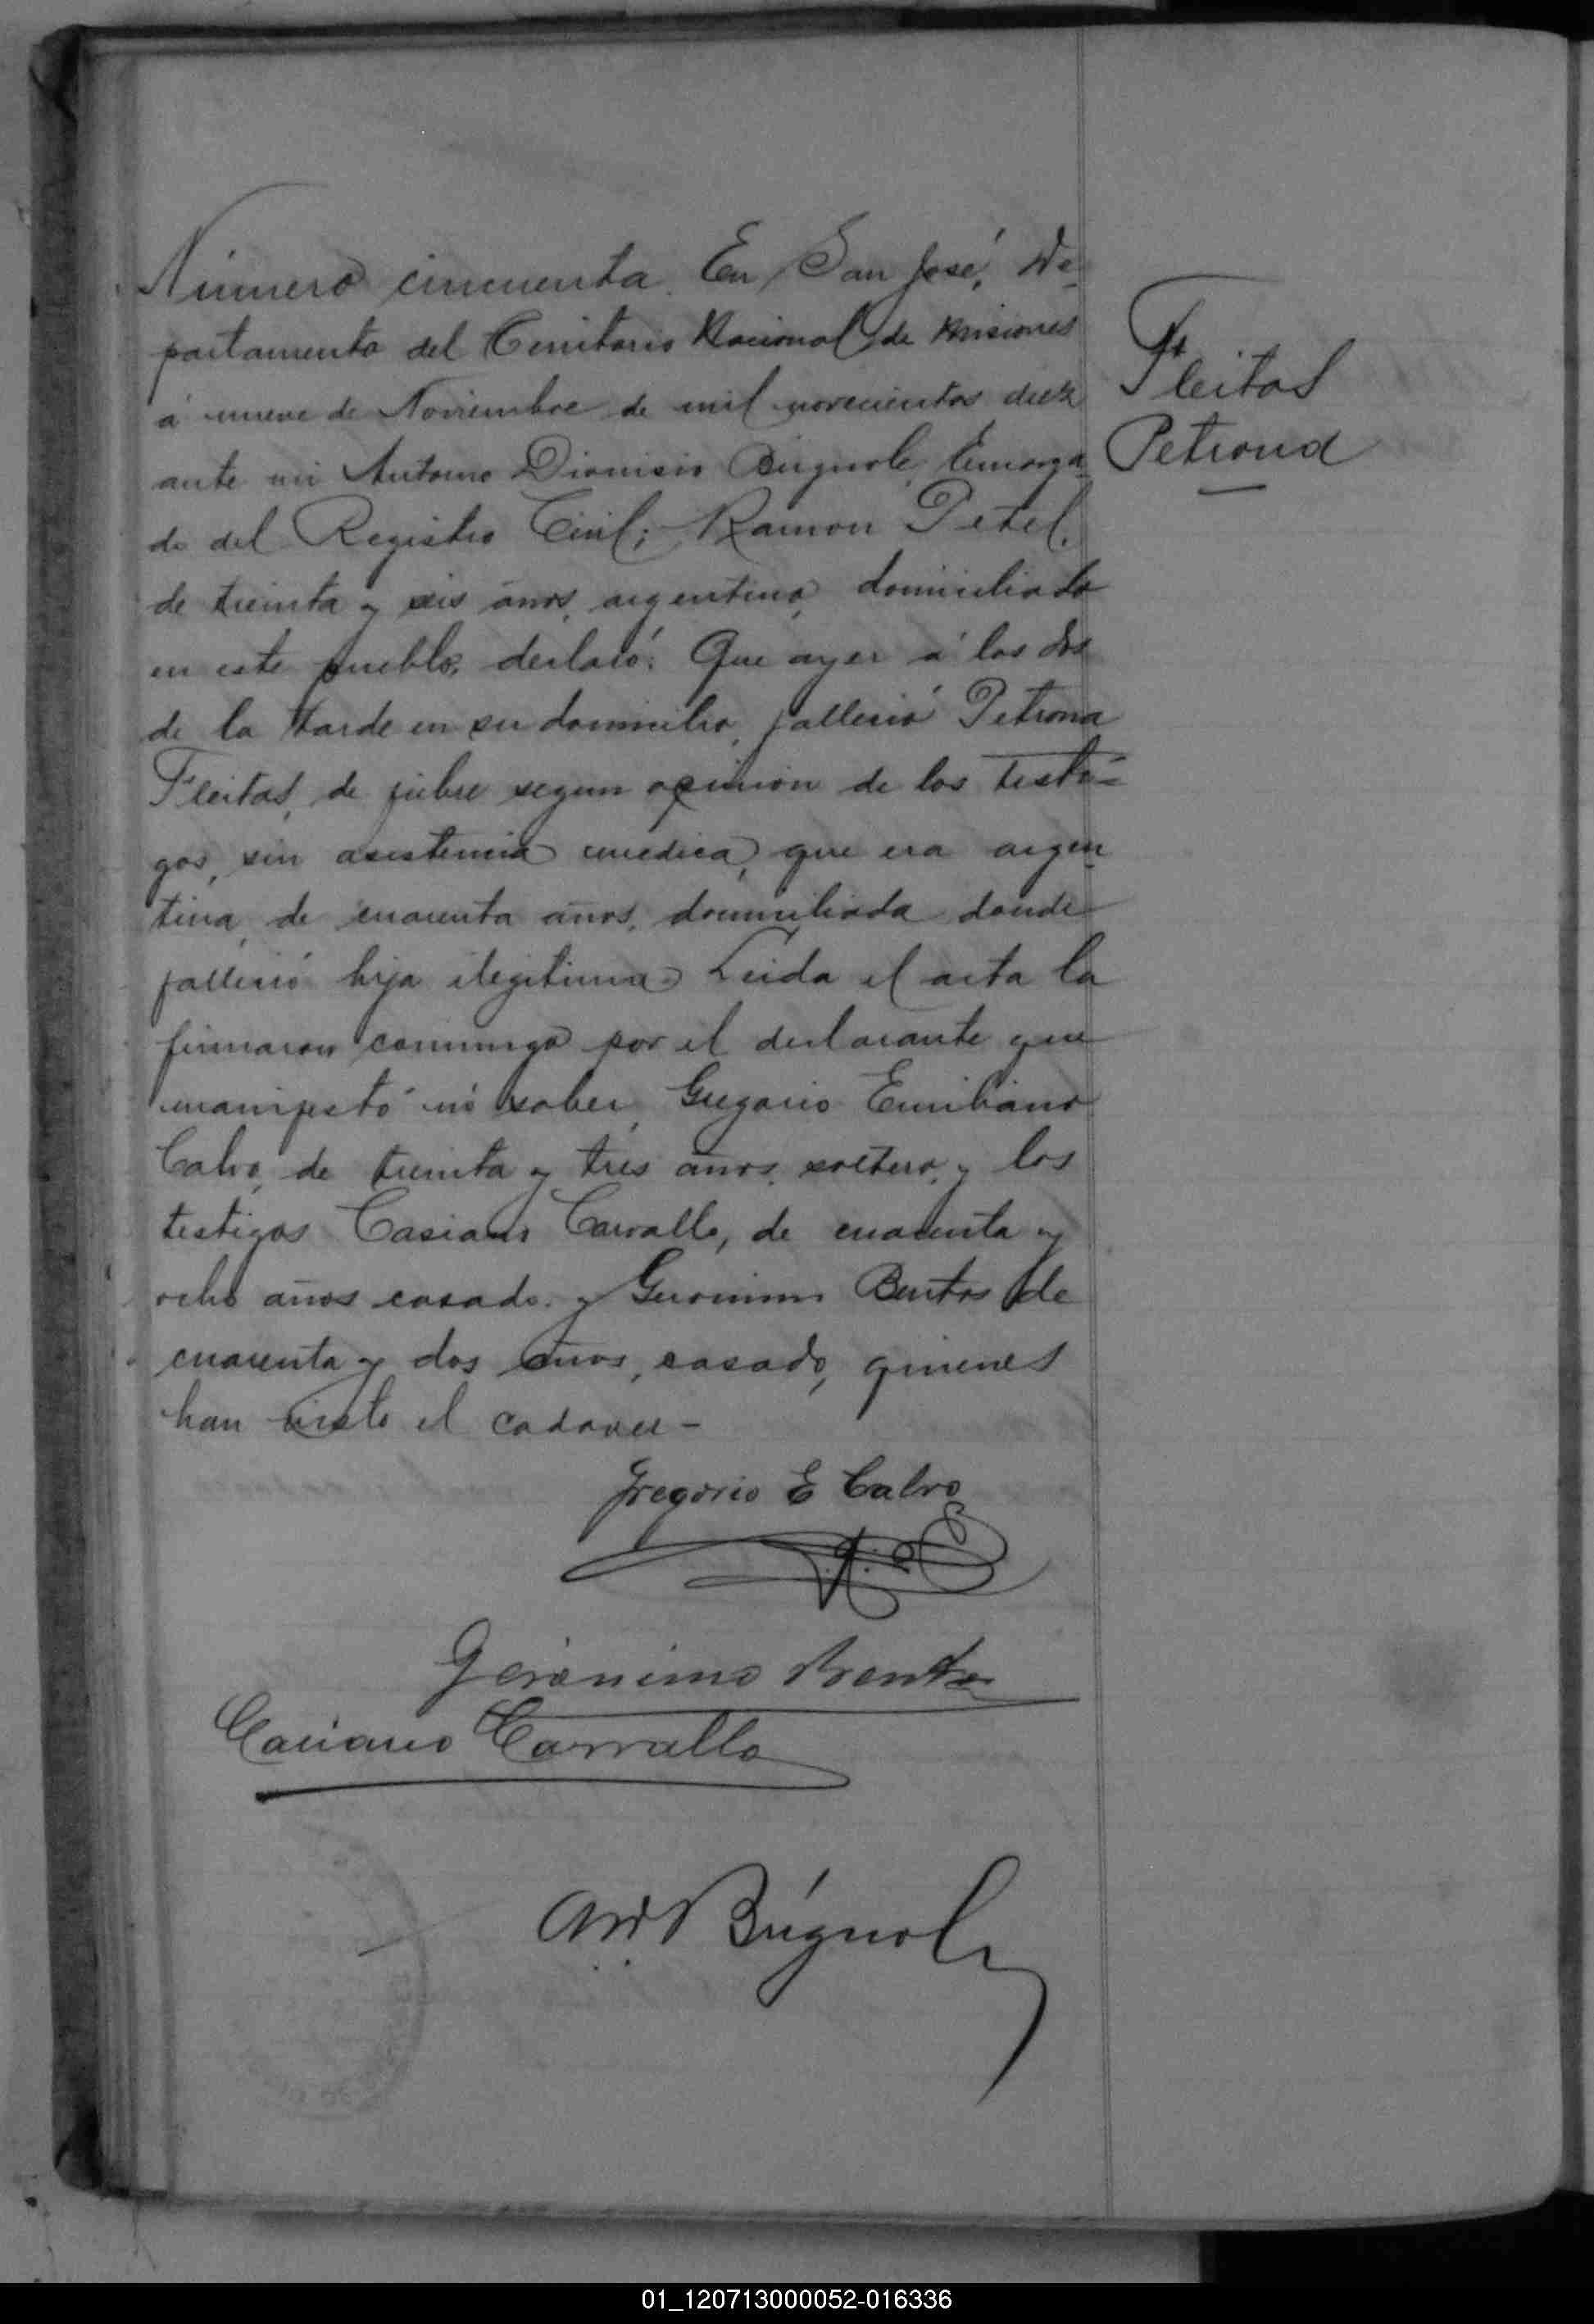 Número cincuenta. En San José, De-
partamento del Territorio Nacional de Misiones
á nueve de Noviembre de mil novecientos diez
ante mi Antonio Dionisio Búgnole, Encarga-
do del Registro Civil; Ramon Petel,
de treinta y seis años, argentino, domiciliado
en este pueblo, declaró: Que ayer á las dos
de la tarde en su domicilio, fallesió Petrona
Fleitas, de fiebre segun opinion de los testi-
gos, sin asistencia médica, que era argen-
tina, de cuarenta años, domiciliada donde
fallesió hija ilegitima. Leida el acta la
firmaron conmigo por el declarante que
manifestó nó saber, Gregorio Emiliano
Calvo, de treinta y tres años, soltero, y los
testigos Casiano Carvallo, de cuarenta y
ocho años casado. y Geronimo Bentos de
cuarenta y dos años, casado, quienes
han visto el cadaver -
Fleitas
Petrona
Gregorio E Calvo
Geronimo Bentos
Casiano Carvallo
A D Búgnole
01_120713000052-016336